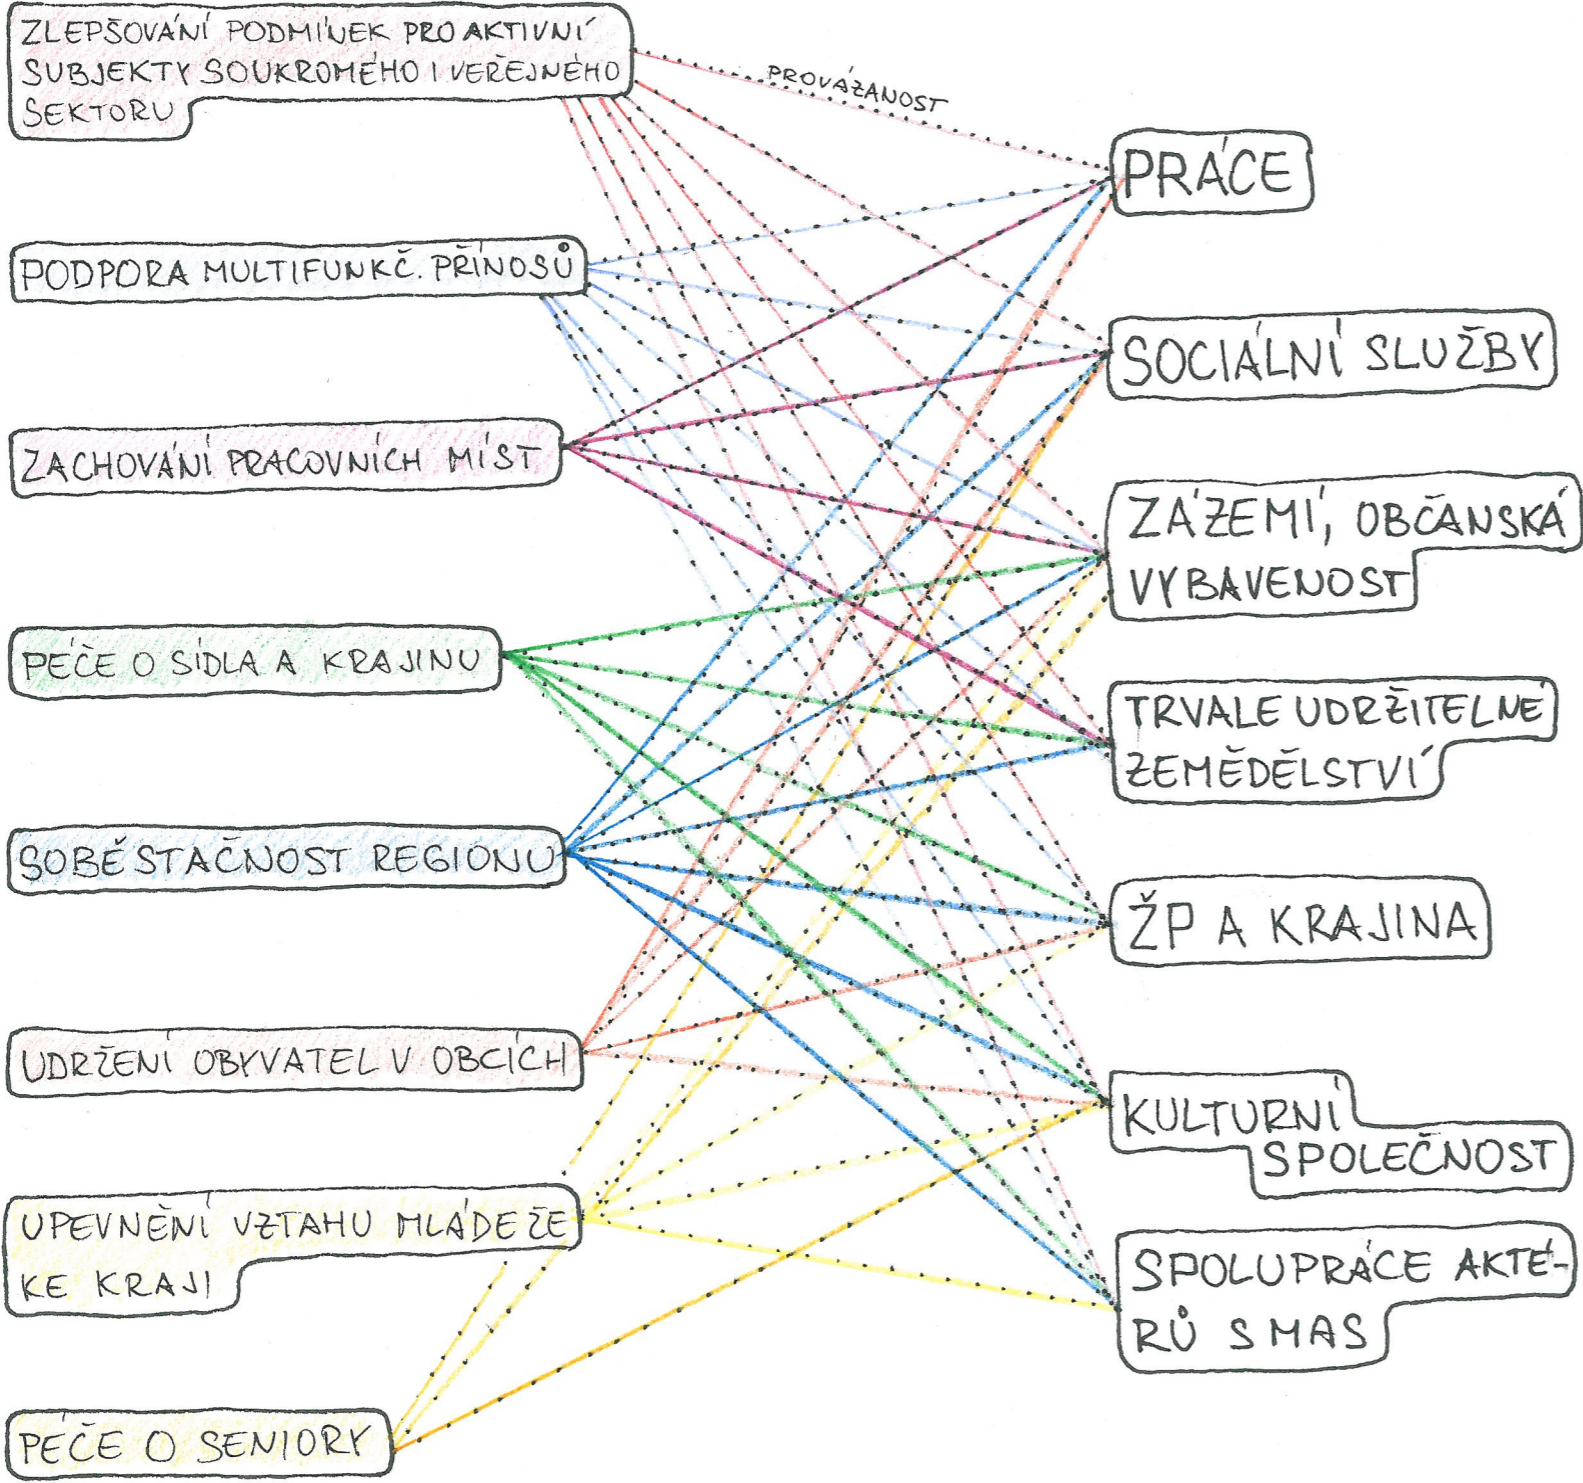 ZLEPŠOVÁNÍ PODMÍNEK PRO AKTIVNÍ
SUBJEKTY SOUKROMÉHO I VEŘEJNÉHO
SEKTORU
PROVÁZANOST
PODPORA MULTIFUNKČ. PŘÍNOSŮ
ZACHOVÁNÍ PRACOVNÍCH MÍST
PÉČE O SÍDLA A KRAJINU
SOBĚSTAČNOST REGIONU
UDRŽENÍ OBYVATEL V OBCÍCH
UPEVNĚNÍ VZTAHU MLÁDEŽE
KE KRAJI
PÉČE O SENIORY
PRÁCE
SOCIÁLNÍ SLUŽBY
ZÁZEMÍ, OBČANSKÁ
VYBAVENOST
TRVALE UDRŽITELNÉ
ZEMĚDĚLSTVÍ
ŽP A KRAJINA
KULTURNÍ
SPOLEČNOST
SPOLUPRÁCE AKTÉ-
RŮ S MAS